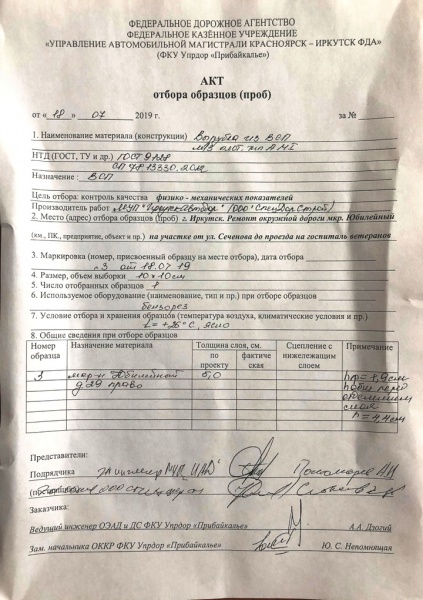 ФЕДЕРАЛЬНОЕ ДОРОЖНОЕ АГЕНТСТВО
ФЕДЕРАЛЬНОЕ КАЗЁННОЕ УЧРЕЖДЕНИЕ
«УПРАВЛЕНИЕ АВТОМОБИЛЬНОЙ МАГИСТРАЛИ КРАСНОЯРСК – ИРКУТСК ФДА»
(ФКУ Упрдор «Прибайкалье»)
АКТ
отбора образцов (проб)
от « 18 » 07 2019 г. за №
1. Наименование материала (конструкции) Вырубка из ВСП
НТД (ГОСТ, ТУ и др.) ГОСТ 9128
СП 78.13330.2012
Назначение : ВСП
Цель отбора: контроль качества физико - механических показателей
Производитель работ МУП "Иркутскавтодор" (ООО "СпецДорСтрой")
2. Место (адрес) отбора образцов (проб) г. Иркутск. Ремонт окружной дороги мкр. Юбилейный
(км., ПК., предприятие, объект и пр.) на участке от ул. Сеченова до проезда на госпиталь ветеранов
3. Маркировка (номер, присвоенный образцу на месте отбора), дата отбора
3 от 18.07.19
4. Размер, объем выборки 10×10см
5. Число отобранных образцов 1
6. Используемое оборудование (наименование, тип и пр.) при отборе образцов
бензорез
7. Условие отбора и хранения образцов (температура воздуха, климатические условия и пр.)
t = +26°С, ясно
8. Общие сведения при отборе образцов
Номер образца Назначение материала Толщина слоя, см. Сцепление с нижележащим слоем Примечание
по проекту фактиче ская
3 мкр-н Юбилейный 5,0
д 29 право
слоя
h = 4,4см
Представители:
Подрядчика Пономарев А.И
Заказчика:
Ведущий инженер ОЭАД и ДС ФКУ Упрдор «Прибайкалье» А.А. Дзогий
Зам. начальника ОККР ФКУ Упрдор «Прибайкалье» Ю. С. Непомнящая